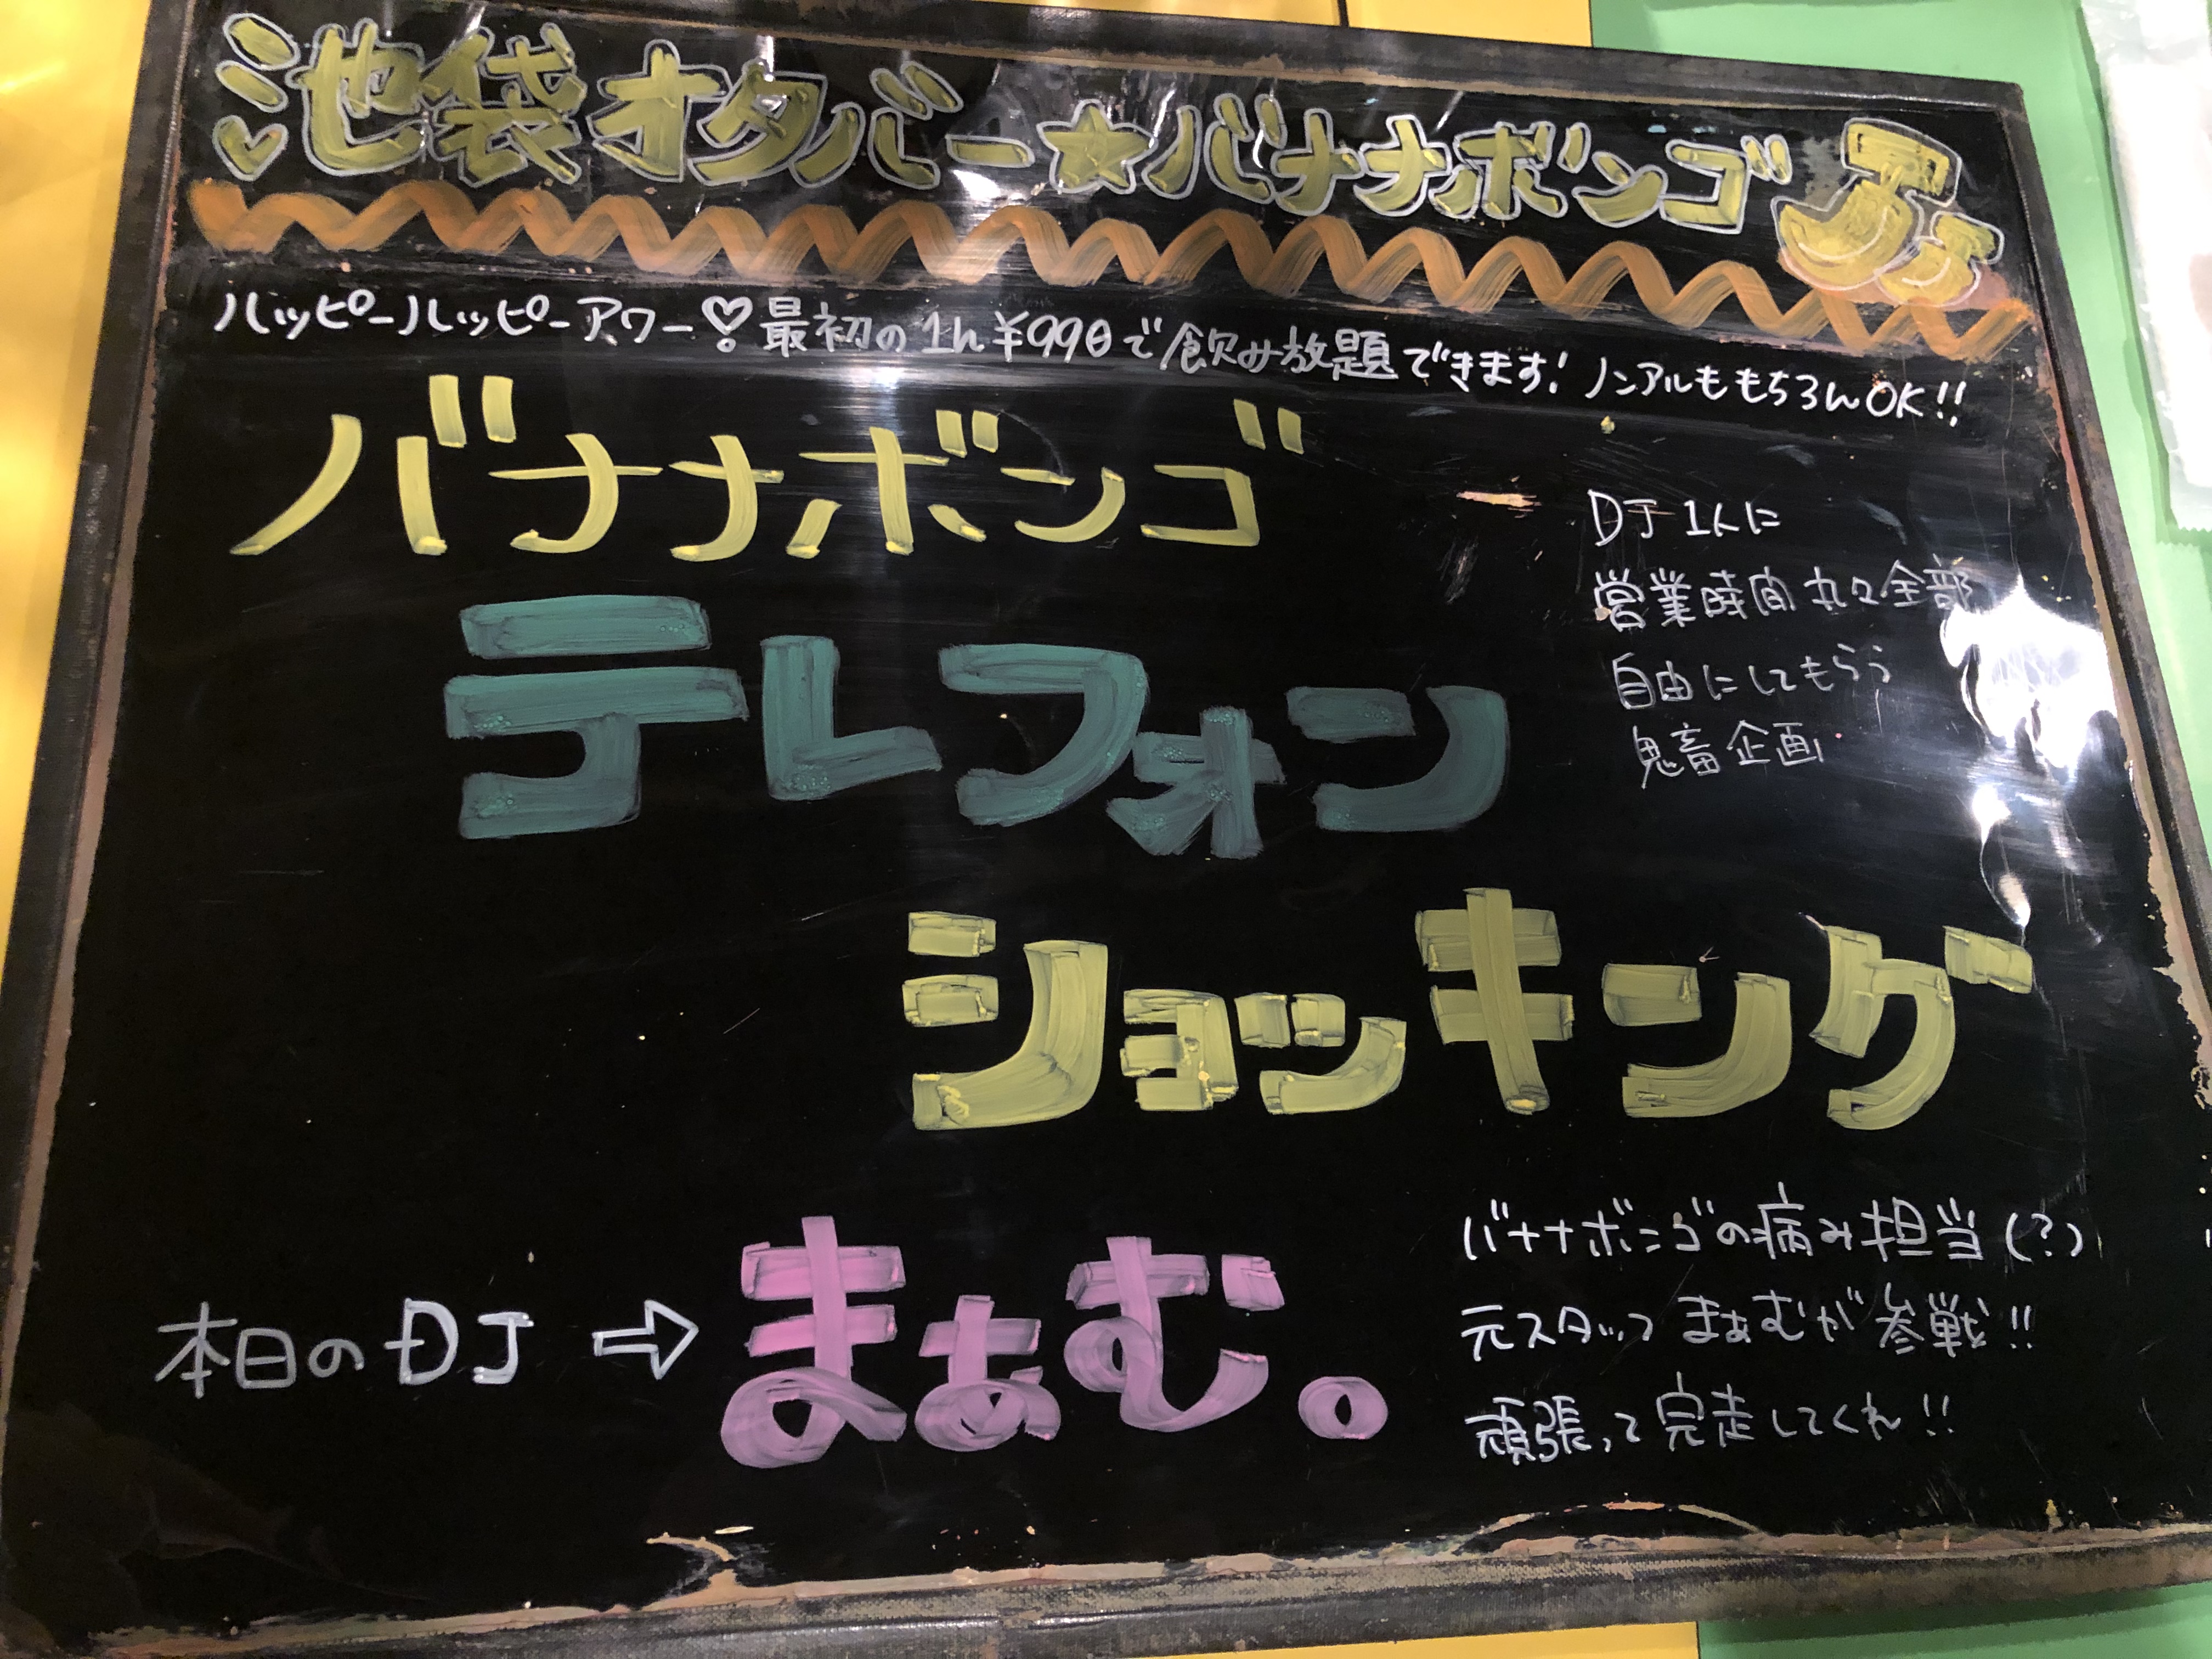 池袋オタバー★バナナボンゴ
ハッピーハッピーアワー♡最初の1h¥990で飲み放題できます!ノンアルももちろんOK!!
バナナボンゴ
テレフォン
ショッキング
DJ 1人に
営業時間丸々全部
自由にしてもらう
鬼畜企画
本日のDJ ⇨ まぁむ。
バナナボンゴの病み担当(?)
元スタッフまぁむが参戦!!
頑張って完走してくれ!!